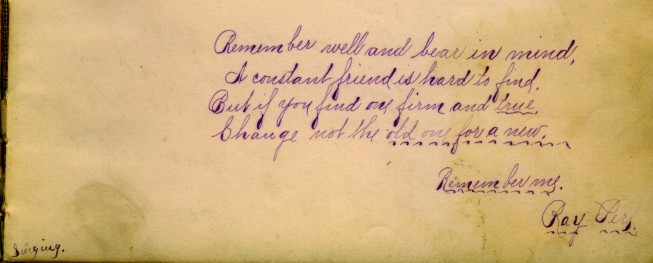 Remember well and bear in mind,
A constant friend is hard to find.
But if you find one firm and true,
Change not the old one for a new.
Remember me.
Ray
Singing.